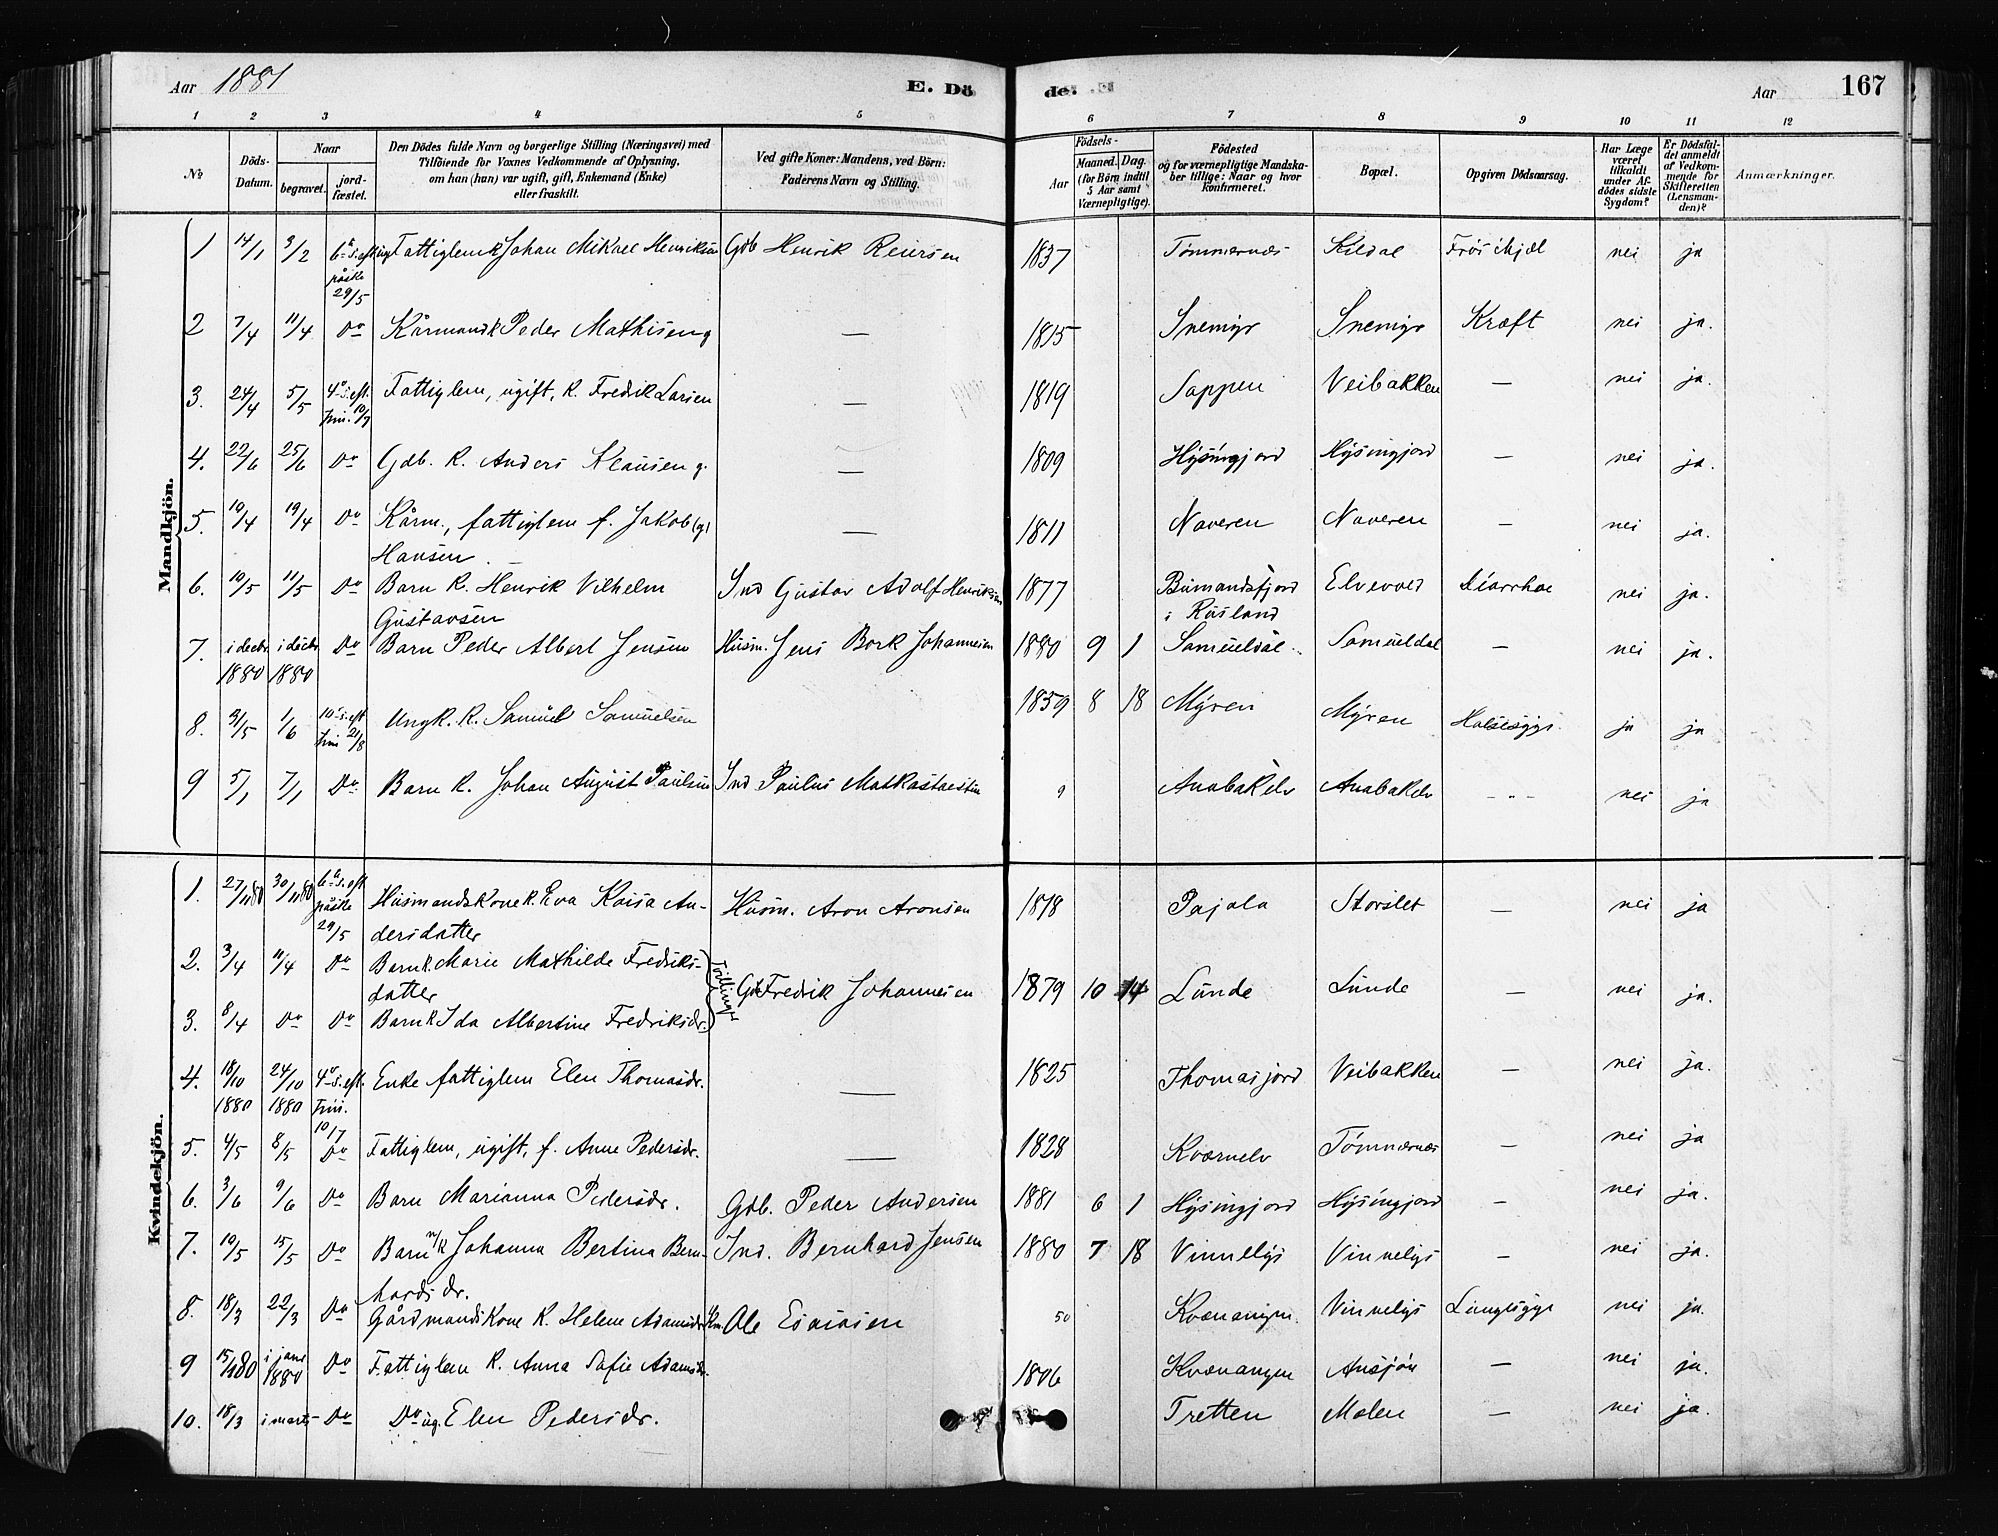 Aar 1881
E. Dö
de.
Aar
167
1 2 3 4 5 6 7 8 9 10 11 12
№
Döds-Datum.
Naar
begravet.
jord-fæstet.
Den Dödes fulde Navn og borgerlige Stilling (Næringsvei) med
Tilföiende for Voxnes Vedkommende af Oplysning,
om han (hun) var ugift, gift, Enkemand (Enke)
eller fraskilt.
Ved gifte Koner: Mandens, ved Börn:
Faderens Navn og Stilling.
Födsels-
Aar
Maaned. Dag.
(for Börn indtil
5 Aar samt
Værnepligtige).
Födested
og for værnepligtige Mandska-
ber tillige: Naar og hvor
konfirmeret.
Bopæl.
Opgiven Dödsaarsag.
Har Læge
været
tilkaldt
under Af-
dödes sidste
Sygdom?
Er Dödsfal-
det anmeldt
af Vedkom-
mende for
Skifteretten
(Lensman-
den)?
Anmærkninger.
Mandkjön.
1 14/1 3/2 6te s. eft. påske 29/5 Fattiglem K Johan Mikael Henriksen Gdb Henrik Reiersen 1837 Tömmernæs Kildal Frös ihjel nei ja
2 7/4 11/4 Do Kårmand K Peder Mathisen g — 1815 Snemyr Snemyr Kræft nei ja.
3. 24/4 5/5 4de s. eft. trin. 10/7 Fattiglem, ugift, K. Fredrik Larsen — 1819 Sappen Veibakken — nei ja.
4. 22/6 25/6 Do Gdb. K. Anders Klausen g. — 1809 Hysingjord Hysingjord — nei ja.
5. 10/4 19/4 Do Kårm., fattiglem f. Jakob (g)
Hansen — 1811 Naveren Naveren — nei ja.
6. 10/5 11/5 Do Barn K. Henrik Vilhelm
Gustavsen Ind Gustav Adolf Henriksen 1877 Bumandsfjord
i Rusland Elvevold Diarrhoe nei ja.
7. i decbr. 1880 i decbr 1880 Do Barn Peder Albert Jensen Husm. Jens Bork Johannesen 1880 9 1 Samueldal Samueldal — nei ja.
8. 31/5 1/6 10de s. eft trin 21/8 Ungk. K. Samuel Samuelsen 1859 8 18 Myren Myren Halsesyge. ja ja
9 5/1 7/1 Do Barn K. Johan August Paulsen Ind Paulus Matkastaestin 9 Anabakelv Anabakelv - " - nei ja
Kvindekjön.
1. 27/11 80 30/11 80 6te s. eft påske 29/5 Husmandskone K. Eva Kaisa An-
dersdatter Husm. Aron Aronsen 1818 Pajala Storslet — nei ja
2. 3/4 11/4 Do Barn K. Marie Mathilde Fredriks-
datter Tvillinger Gdb Fredrik Johannesen 1879 10 14 Lunde Lunde — nei ja.
3. 8/4 Do Do Barn K Ida Albertine Fredriksdr.
4. 18/10 1880 24/10 1880 4de s. eft. trin. 10/7 Enke fattiglem Elen Thomasdr. — 1825 Thomasjord Veibakken — nei ja.
5. 4/5 8/5 Do Fattiglem, ugift, f. Anne Pedersdr. — 1828 Kværnelv Tömmernæs — nei ja
6. 3/6 9/6 Do Barn Marianna Pedersdr. Gdb. Peder Andersen 1881 6 1 Hysingjord Hysingjord — nei ja.
7. 10/5 15/5 Do Barn n/K Johanna Bertina Bern-
hardsdr. Ind. Bernhard Jensen 1880 7 18 Vinnelys Vinnelys — nei ja.
8. 18/3 22/3 Do Gårdmandskone K. Helene Adamsdr Km. Ole Esaiasen 50 Kvænangen. Vinnelys Lungesyge nei ja.
9 15/1 80 i janr 1880 Do Fattiglem K. Anna Sofie Adamsdr. 1806 Kvænangen — nei ja.
10. 18/3 i marts Do Do ug. Elen Pedersdr. Tretten Molen — nei ja.